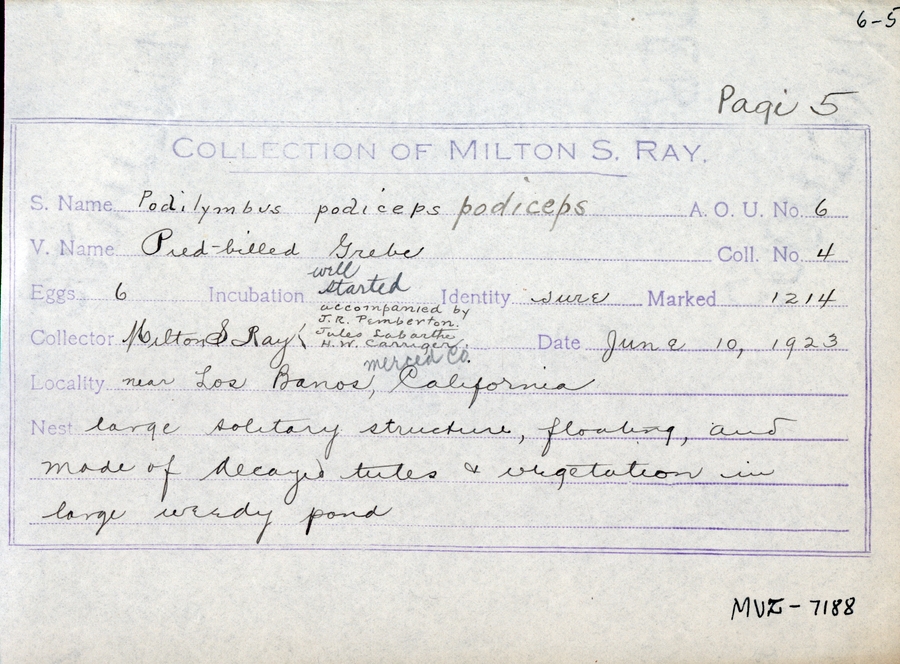 6-5
Pagi 5
COLLECTION OF MILTON S. RAY.
S. Name Podilymbus podiceps podiceps A. O. U. No. 6
V. Name Pied-billed Grebe Coll. No. 4
Eggs 6 Incubation well started Identity sure Marked 1214
accompanied by
J.R. Pemberton.
Jules Labarthe
H.W. Carriger.
Collector Milton S Ray Date June 10, 1923
Merced Co.
Locality near Los Banos, California
Nest large solitary structure, floating, and
made of decayed tules & vegetation in
large weedy pond
MVZ-7188